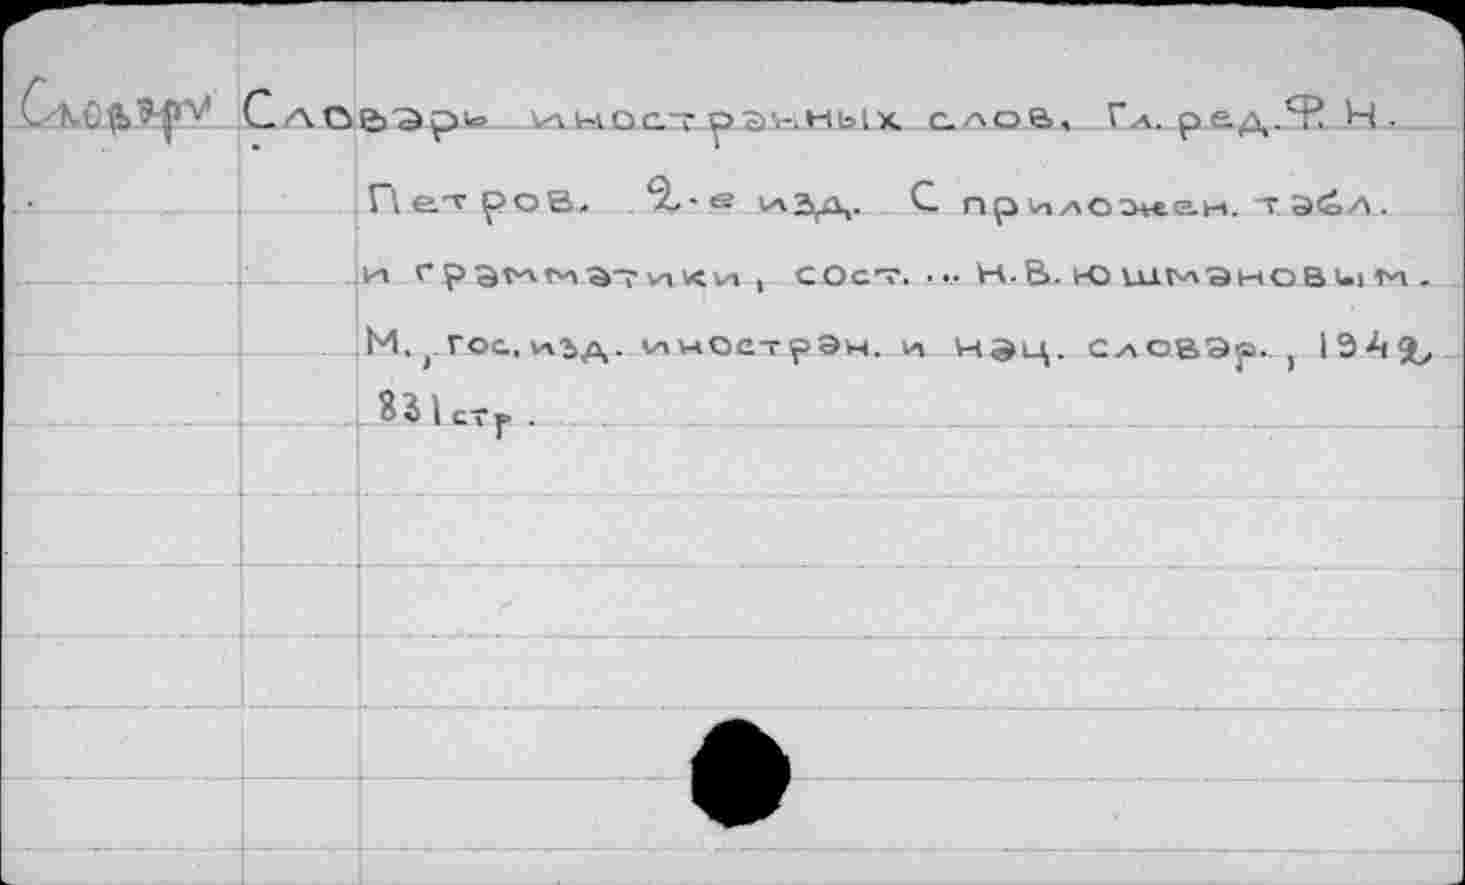 Словари Словарь иностранных слов, Гл. ред. Ф. Н.
Петров. 2-е изд. С приложен. табл.
и грамматики, сост. ... Н.В. Юшмановым.
М., Гос. изд. иностран. и нац. словар., 1942,
831 стр.